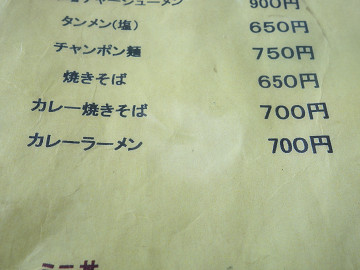 チャーシューメン 900円
タンメン(塩) 650円
チャンポン麺 750円
焼きそば 650円
カレー焼きそば 700円
カレーラーメン 700円
ミニ丼